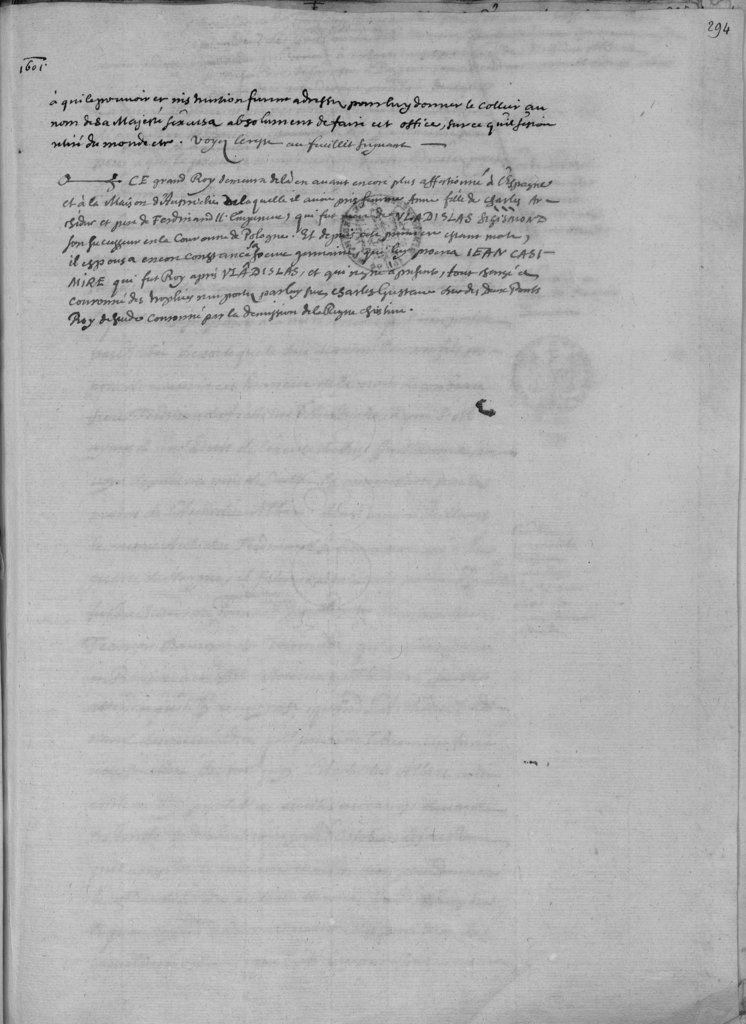 294
1601.
à qui le pouvoir et instruction furent adressez pour luy donner le collier au
nom de sa Majesté s'excusa absolument de faire cet office, sur ce qu'il s'estoit
retiré du monde etc. Voyez le reste au feuillet suyuant
CE grand Roy demeura delà en auant encore plus affectionné à l'Espagne
et à la Maison d'Austriche de laquelle il auoit pris femme Anne fille de Charles Ar-
chiduc et sœur de Ferdinand II. Empereur, qui fut mere de VLADISLAS SIGISMOND
son successeur en la Couronne de Pologne. Et depuis cete premiere estant morte,
il espousa encore Constance sa sœur germaine, qui luy procrea IEAN CASI-
MIRE qui fut Roy après VLADISLAS, et qui regne à present, tout chargé et
couronné des trophées remportez par luy sur Charles Gustaue Duc des Deux Ponts
Roy de Suede Couronné par la demission de la Reyne Christine.